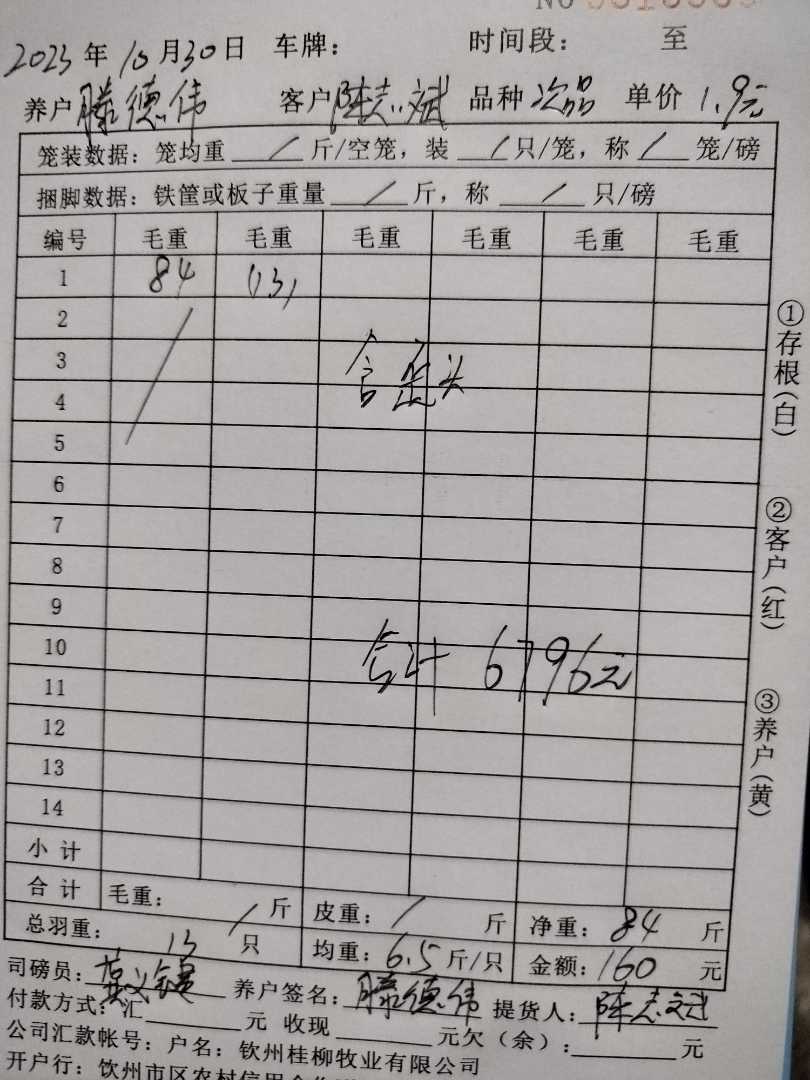 2023年10月30日 车牌： 时间段： 至
养户 滕德伟 客户 陈志斌 品种 次品 单价 1.9元
笼装数据：笼均重 / 斤/空笼，装 / 只/笼，称 / 笼/磅
捆脚数据：铁筐或板子重量 / 斤，称 / 只/磅
编号 毛重 毛重 毛重 毛重 毛重 毛重
1 84 (13)
2
3 含歪头
4
5
6
7
8
9
10 合计 6796元
11
12
13
14
小计
合计 毛重： / 斤 皮重： / 斤 净重：84 斤
总羽重： 13 只 均重：6.5 斤/只 金额：160 元
司磅员： 养户签名：滕德伟 提货人：陈志斌
付款方式：汇 元 收现 元欠（余）： 元
公司汇款帐号：户名：钦州桂柳牧业有限公司
开户行：钦州市区农村信用合作
①存根（白）
②客户（红）
③养户（黄）